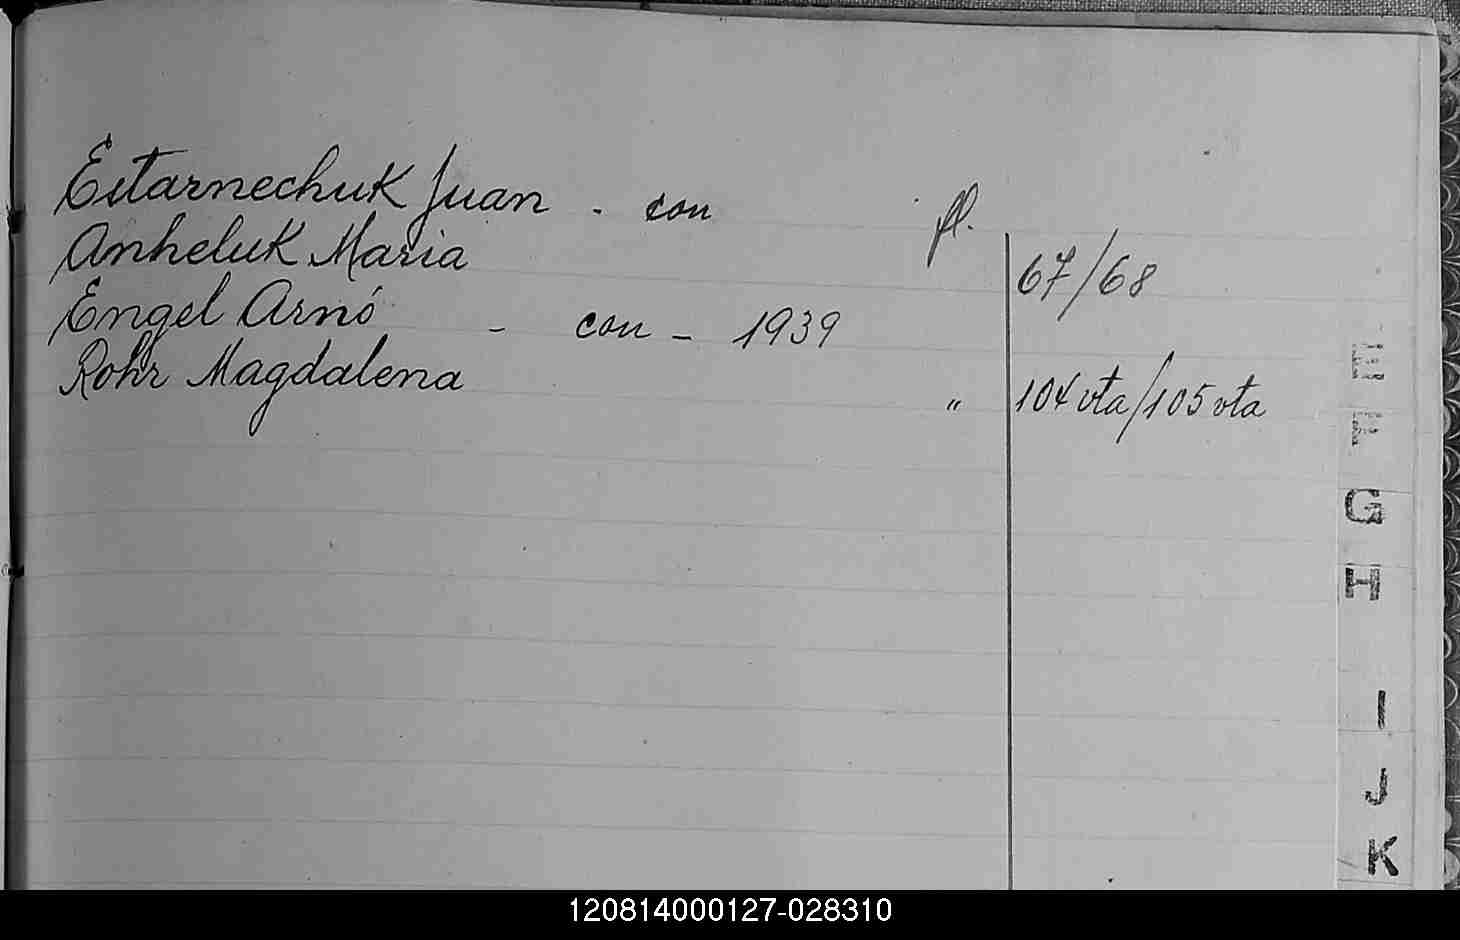 Estarnechuk Juan - con
Anheluk Maria fl. 67/68
Engel Arnó - con - 1939
Rohr Magdalena " 104 vta/105 vta
E
F
G
H
I
J
K
120814000127-028310